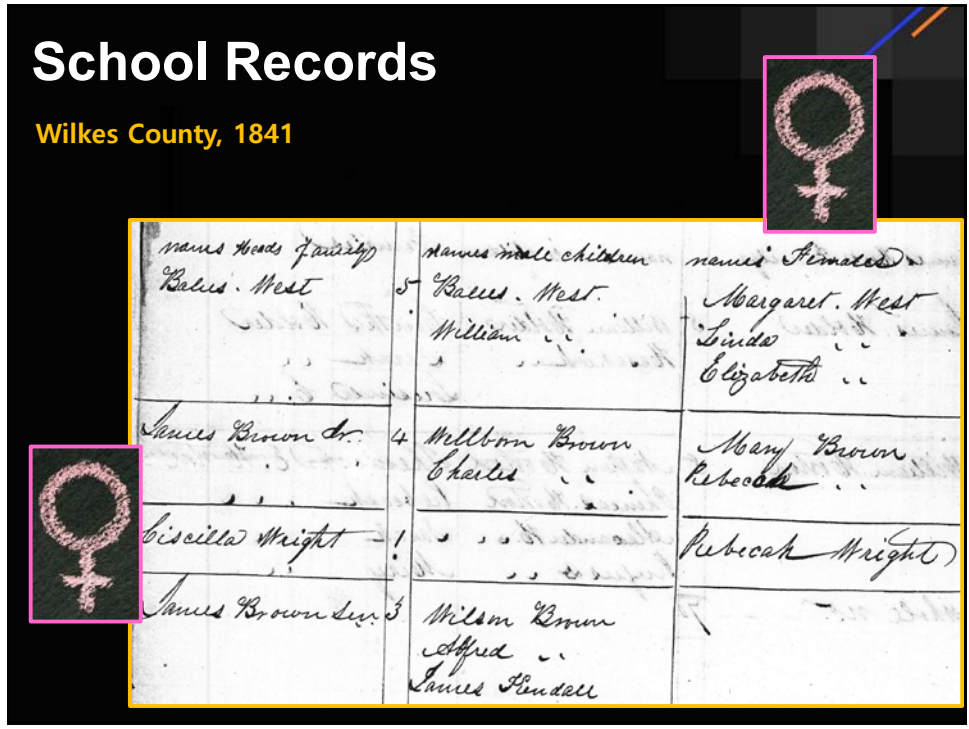 School Records
Wilkes County, 1841
names Heads family names male children names Females
Balus. West 5 Balus. West. Margaret. West
William " Linda "
Elizabeth "
James Brown Jr. 4 Wellborn Brown Mary Brown
Charles " Rebecah "
Ciscilla Wright 1 " " Rebecah Wright
James Brown Sen. 3 Wilson Brown
Alfred "
James Kendall